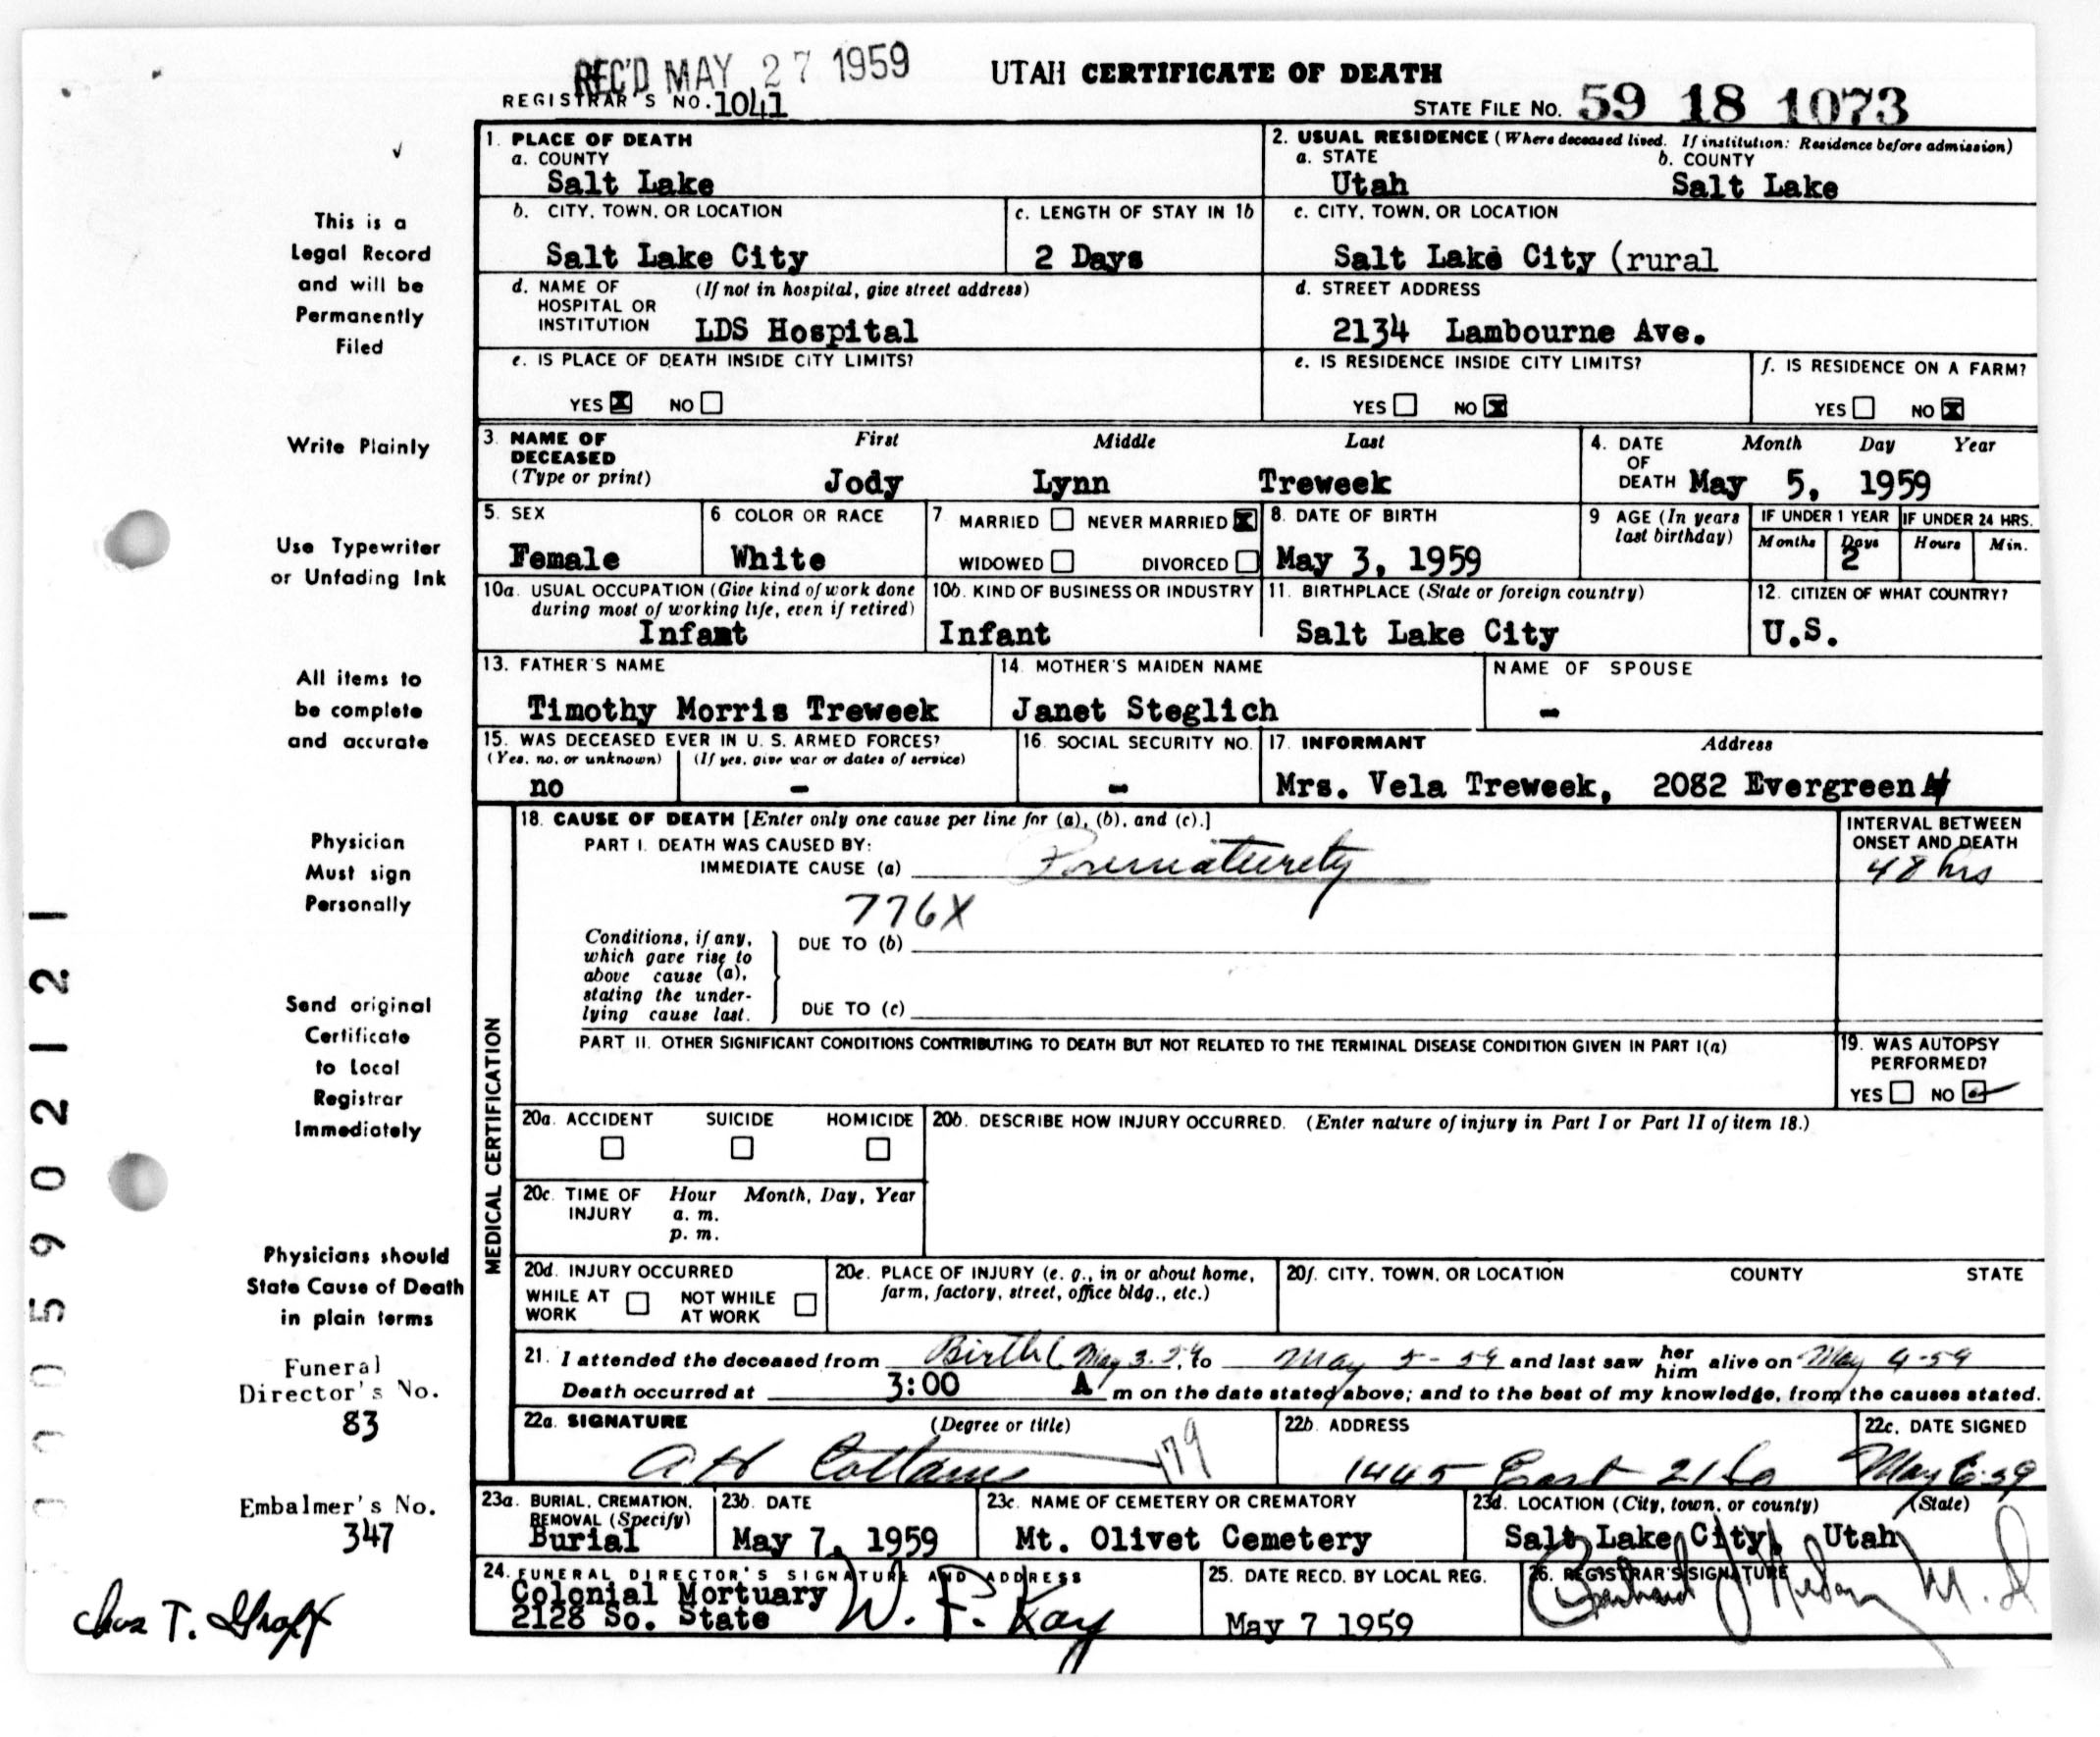 REC'D MAY 27 1959
UTAH CERTIFICATE OF DEATH
REGISTRAR'S NO. 1041
STATE FILE NO. 59 18 1073
1. PLACE OF DEATH
a. COUNTY
Salt Lake
2. USUAL RESIDENCE (Where deceased lived. If institution: Residence before admission)
a. STATE b. COUNTY
Utah Salt Lake
b. CITY, TOWN, OR LOCATION
Salt Lake City
c. LENGTH OF STAY IN 1b
2 Days
c. CITY, TOWN, OR LOCATION
Salt Lake City (rural
d. NAME OF (If not in hospital, give street address)
HOSPITAL OR
INSTITUTION LDS Hospital
d. STREET ADDRESS
2134 Lambourne Ave.
e. IS PLACE OF DEATH INSIDE CITY LIMITS?
YES NO
e. IS RESIDENCE INSIDE CITY LIMITS?
YES NO
f. IS RESIDENCE ON A FARM?
YES NO
3. NAME OF DECEASED (Type or print)
First Middle Last
Jody Lynn Treweek
4. DATE OF DEATH
Month Day Year
May 5, 1959
5. SEX
Female
6 COLOR OR RACE
White
7 MARRIED NEVER MARRIED
WIDOWED DIVORCED
8. DATE OF BIRTH
May 3, 1959
9 AGE (In years last birthday)
IF UNDER 1 YEAR IF UNDER 24 HRS.
Months Days Hours Min.
2
10a. USUAL OCCUPATION (Give kind of work done
during most of working life, even if retired)
Infant
10b. KIND OF BUSINESS OR INDUSTRY
Infant
11. BIRTHPLACE (State or foreign country)
Salt Lake City
12. CITIZEN OF WHAT COUNTRY?
U.S.
13. FATHER'S NAME
Timothy Morris Treweek
14. MOTHER'S MAIDEN NAME
Janet Steglich
NAME OF SPOUSE
-
15. WAS DECEASED EVER IN U. S. ARMED FORCES?
(Yes, no, or unknown) (If yes, give war or dates of service)
no -
16. SOCIAL SECURITY NO.
-
17. INFORMANT Address
Mrs. Vela Treweek, 2082 Evergreen
MEDICAL CERTIFICATION
18. CAUSE OF DEATH [Enter only one cause per line for (a), (b), and (c).]
PART I. DEATH WAS CAUSED BY:
IMMEDIATE CAUSE (a) Prematurety
INTERVAL BETWEEN
ONSET AND DEATH
48 hrs
776X
Conditions, if any,
which gave rise to
above cause (a),
stating the under-
lying cause last.
DUE TO (b)
DUE TO (c)
PART II. OTHER SIGNIFICANT CONDITIONS CONTRIBUTING TO DEATH BUT NOT RELATED TO THE TERMINAL DISEASE CONDITION GIVEN IN PART I(a)
19. WAS AUTOPSY
PERFORMED?
YES NO
20a. ACCIDENT SUICIDE HOMICIDE
20b. DESCRIBE HOW INJURY OCCURRED. (Enter nature of injury in Part I or Part II of item 18.)
20c. TIME OF INJURY Hour Month, Day, Year
a. m.
p. m.
20d. INJURY OCCURRED
WHILE AT WORK NOT WHILE AT WORK
20e. PLACE OF INJURY (e. g., in or about home,
farm, factory, street, office bldg., etc.)
20f. CITY, TOWN, OR LOCATION COUNTY STATE
21. I attended the deceased from Birth ( May 3.59, to May 5-59 and last saw her him alive on May 4-59
Death occurred at 3:00 A m on the date stated above; and to the best of my knowledge, from the causes stated.
22a. SIGNATURE (Degree or title)
A H Cottam 179
22b. ADDRESS
1445 East 21 So
22c. DATE SIGNED
May 6-59
23a. BURIAL, CREMATION,
REMOVAL (Specify)
Burial
23b. DATE
May 7, 1959
23c. NAME OF CEMETERY OR CREMATORY
Mt. Olivet Cemetery
23d. LOCATION (City, town, or county) (State)
Salt Lake City, Utah
24. FUNERAL DIRECTOR'S SIGNATURE AND ADDRESS
Colonial Mortuary
2128 So. State
W. F. Kay
25. DATE RECD. BY LOCAL REG.
May 7 1959
26. REGISTRAR'S SIGNATURE
M. D
This is a
Legal Record
and will be
Permanently
Filed
Write Plainly
Use Typewriter
or Unfading Ink
All items to
be complete
and accurate
Physician
Must sign
Personally
Send original
Certificate
to Local
Registrar
Immediately
Physicians should
State Cause of Death
in plain terms
Funeral
Director's No.
83
Embalmer's No.
347
Chas T.
000590212121